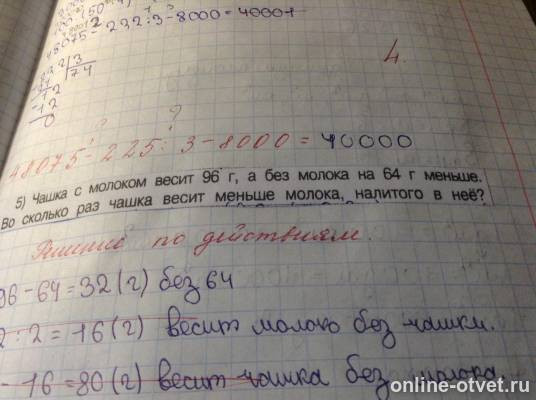 48075-232:3-8000=40001
3
74
12
12
0
4.
? ?
48075-225:3-8000=40000
5) Чашка с молоком весит 96 г, а без молока на 64 г меньше.
Во сколько раз чашка весит меньше молока, налитого в неё?
Решение по действиям.
96-64=32(г) без 64
2:2=16(г) весит молоко без чашки.
- 16=80(г) весит чашка без молока.
online-otvet.ru